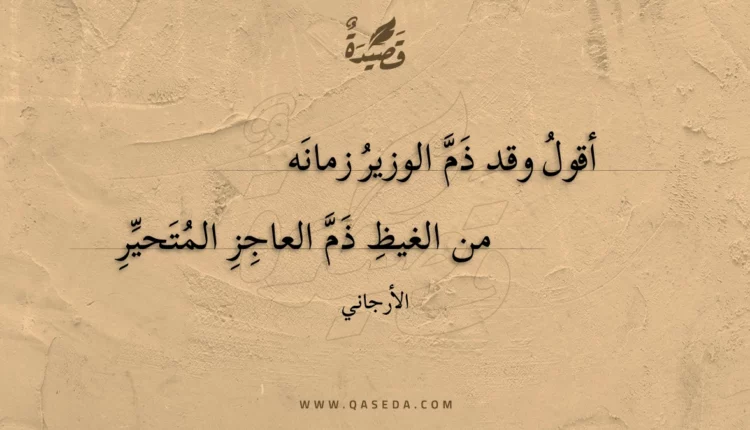 قَصِيْدَةٌ
أقولُ وقد ذَمَّ الوزيرُ زمانَه
من الغيظِ ذَمَّ العاجِزِ المُتَحيِّرِ
الأرجاني
WWW.QASEDA.COM